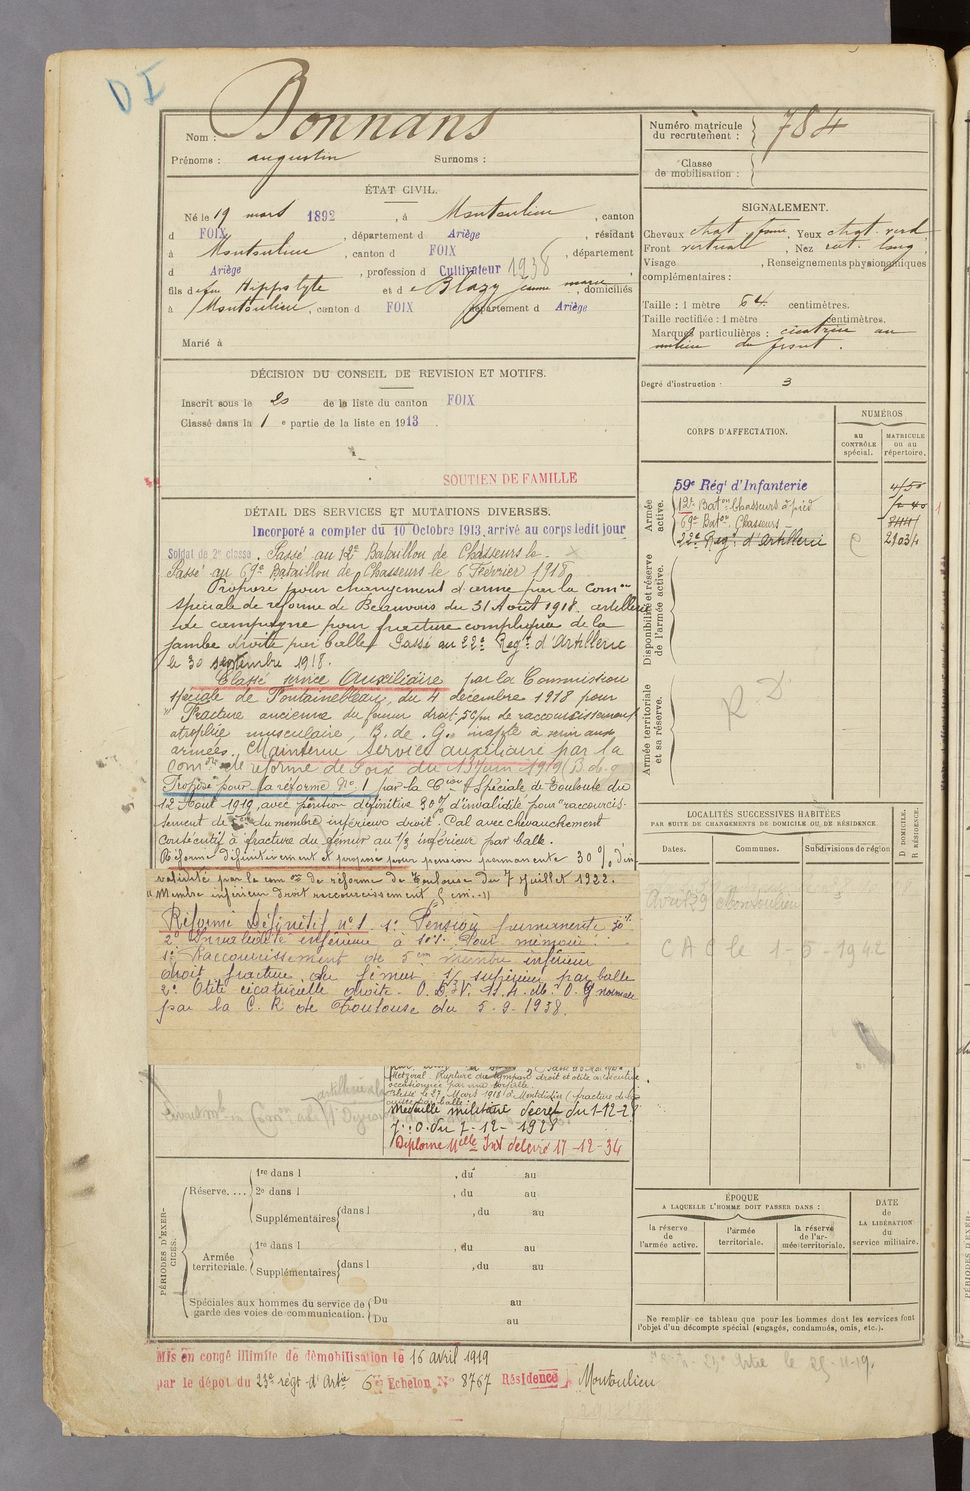 DI
Nom : Bonnans
Prénoms : augustin Surnoms :
Numéro matricule du recrutement : 784
Classe de mobilisation :
ÉTAT CIVIL.
Né le 19 mars 1892, à Montoulieu, canton
d FOIX, département d Ariège, résidant
à Montoulieu, canton d FOIX, département
d Ariège, profession d Cultivateur 1938
fils de feu Hippolyte et de Blazy jeanne marie, domiciliés
à Montoulieu, canton d FOIX département d Ariège
Marié à
SIGNALEMENT.
Cheveux chat. , Yeux chat. verd
Front vertical, Nez rect. long
Visage , Renseignements physionomiques
complémentaires :
Taille : 1 mètre 64 centimètres.
Taille rectifiée : 1 mètre centimètres.
Marques particulières : cicatrice au
milieu du front.
Degré d'instruction : 3
DÉCISION DU CONSEIL DE REVISION ET MOTIFS.
Inscrit sous le 20 de la liste du canton FOIX
Classé dans la 1e partie de la liste en 1913.
SOUTIEN DE FAMILLE
CORPS D'AFFECTATION.
NUMÉROS
au CONTRÔLE spécial.
MATRICULE ou au répertoire.
Armée active.
59e Régt d'Infanterie 4150
12e Baton Chasseurs à pied
69e Baton Chasseurs
22e Régt d'Artillerie 21034
Disponibilité et réserve de l'armée active.
Armée territoriale et sa réserve.
R. D.
DÉTAIL DES SERVICES ET MUTATIONS DIVERSES.
Incorporé a compter du 10 Octobre 1913, arrivé au corps ledit jour
Soldat de 2e classe. Passé au 12e Bataillon de Chasseurs le
Passé au 69e Bataillon de Chasseurs le 6 Février 1918
Proposé pour changement d'arme par la Comon
spéciale de réforme de Beauvais du 31 Août 1918. artillerie
de campagne pour fracture compliquée de la
jambe droite par balle. Passé au 22e Régt d'Artillerie
le 30 septembre 1918.
Classé service Auxiliaire par la Commission
spéciale de Fontainebleau, du 4 décembre 1918 pour
"Fracture ancienne du fémur droit, 5c/m de raccourcissement
atrophie musculaire, B. de. G. inapte à servir aux
armées. Maintenu service auxiliaire par la
comon de réforme de Foix du 13 juin 1919 (B.d.g
Proposé pour la réforme No 1 par la Cion Spéciale de Toulouse du
12 Août 1919, avec pension définitive 30% d'invalidité pour "raccourcis-
sement de du membre inférieur droit. Cal avec chevauchement
consécutif à fracture du fémur au 1/3 inférieur par balle.
Réformé définitivement et proposé pour pension permanente 30% d'in
validité par la com on de réforme de Toulouse du 7 juillet 1922.
"Membre inférieur droit raccourcissement 5 cm. "
Réformé Définitif no 1 1° Pension permanente 30%
2° Invalidité inférieure à 10%. Pour mémoire :
1° Raccourcissement de 5cm membre inférieur
droit fracture du fémur 1/3 supérieur par balle
2° Otite cicatricielle droite. O.D.
par la C. R de Toulouse du 5-9-1938.
Metzeral. Rupture du tympan droit et otite
occasionnée par une torpille.
Blessé le 27 Mars 1918 à Montdidier (fracture de la
cuisse par balle.
Médaille militaire décret du 1-12-28
J: O. du 7-12-1928
Diplome Melle Int délivré 17-12-34
LOCALITÉS SUCCESSIVES HABITÉES
PAR SUITE DE CHANGEMENTS DE DOMICILE OU DE RÉSIDENCE.
Dates. Communes. Subdivisions de région
D DOMICILE.
R RÉSIDENCE.
Avril 39 Montoulieu
C A C le 1-5-1942
PÉRIODES D'EXERCICES.
Réserve....
1re dans l , du au
2e dans l , du au
Supplémentaires dans l , du au
Armée territoriale.
1re dans l , du au
Supplémentaires dans l , du au
Spéciales aux hommes du service de garde des voies de communication.
Du au
Du au
ÉPOQUE
A LAQUELLE L'HOMME DOIT PASSER DANS :
la réserve de l'armée active.
l'armée territoriale.
la réserve de l'armée territoriale.
DATE de LA LIBÉRATION du service militaire.
Ne remplir ce tableau que pour les hommes dont les services font
l'objet d'un décompte spécial (engagés, condamnés, omis, etc.).
Mis en congé illimité de démobilisation le 16 avril 1919
par le dépôt du 23e régt d'Artie 6e Echelon No 8767 Résidence Montoulieu
23e Artie le 25-11-19.